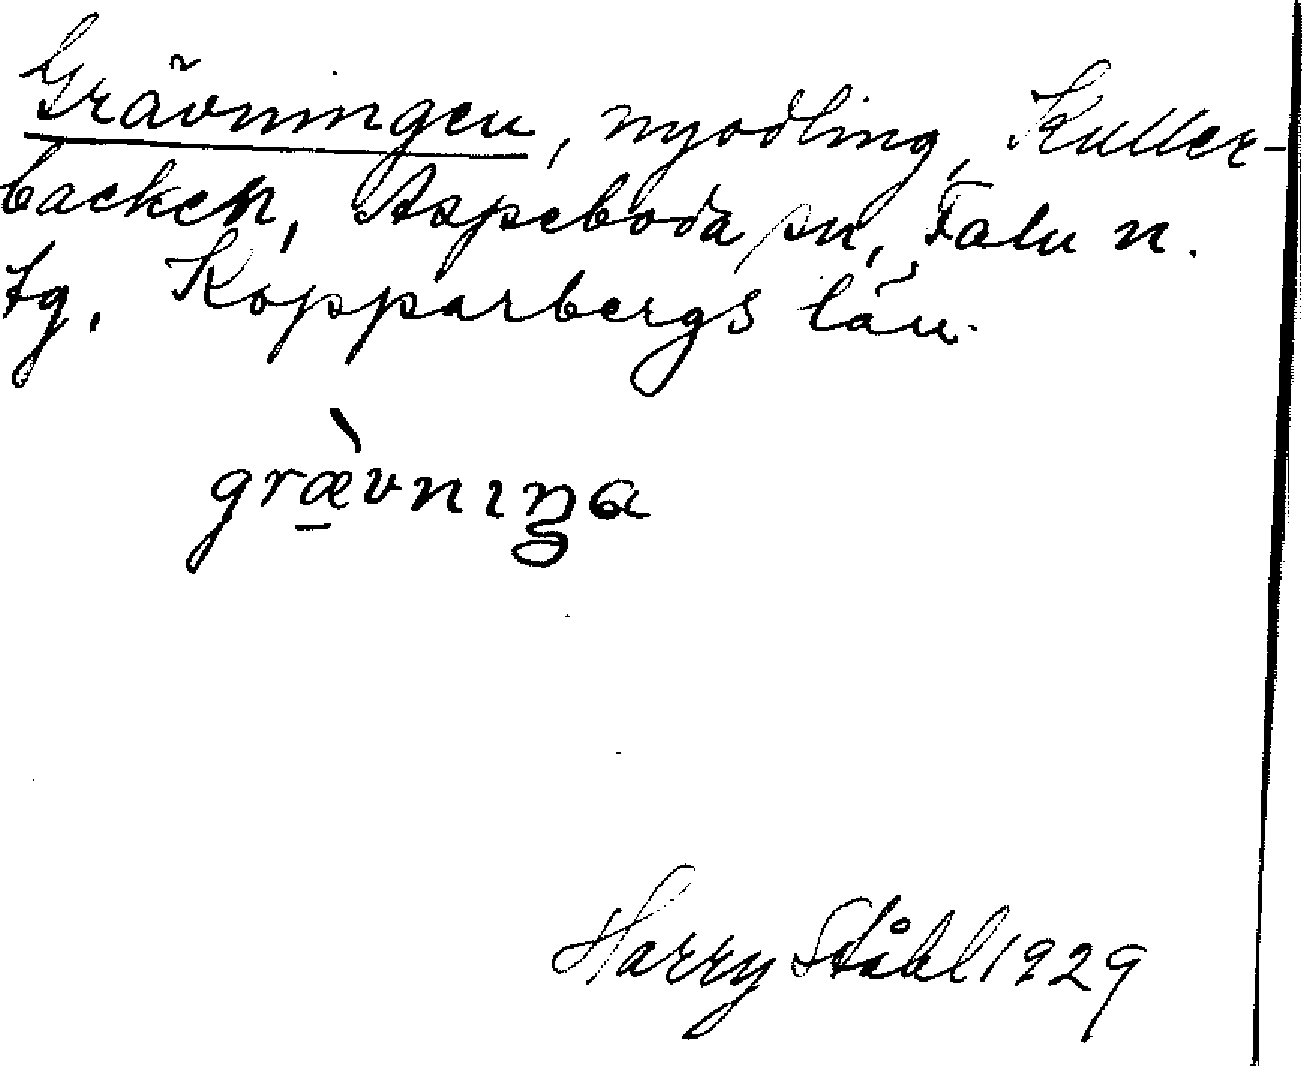 Grävningen, nyodling, Kuller-
backen, Aspeboda sn, Falu n.
tg, Kopparbergs län.
græ̱̀vnıŋa
Harry Ståhl 1929